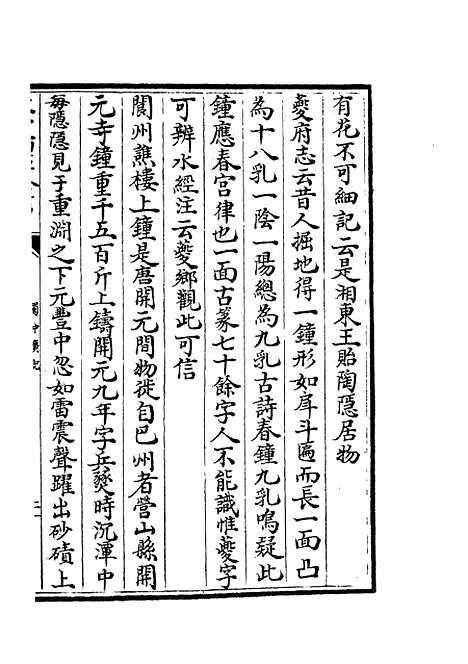 有花不可細記云是湘東王貽陶隱居物
夔府志云昔人掘地得一鐘形如戽斗匾而長一面凸
為十八乳一陰一陽總為九乳古詩春鐘九乳鳴疑此
鐘應春宮律也一面古篆七十餘字人不能識惟夔字
可辨水經注云夔鄉觀此可信
閬州譙樓上鐘是唐開元間物徙自巴州者營山縣開
元寺鐘重千五百斤上鑄開元九年字兵燹時沉潭中
每隱隱見于重淵之下元豐中忽如雷震聲躍出砂磧上
蜀中廣記